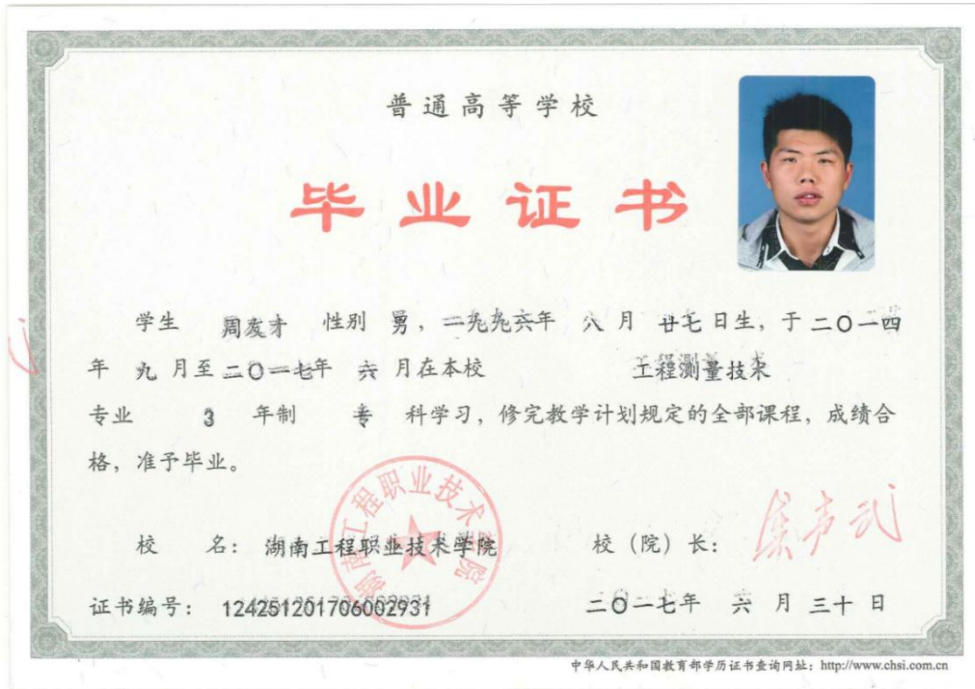 普通高等学校
毕业证书
学生 周友才 性别 男，一九九六年 八 月 廿七 日生，于 二〇一四
年 九 月至 二〇一七年 六 月在本校 工程测量技术
专业 3 年制 专 科学习，修完教学计划规定的全部课程，成绩合
格，准予毕业。
校 名：湖南工程职业技术学院 校（院）长：
湖南工程职业技术学院
证书编号：124251201706002931 二〇一七年 六 月 三十 日
中华人民共和国教育部学历证书查询网址：http://www.chsi.com.cn